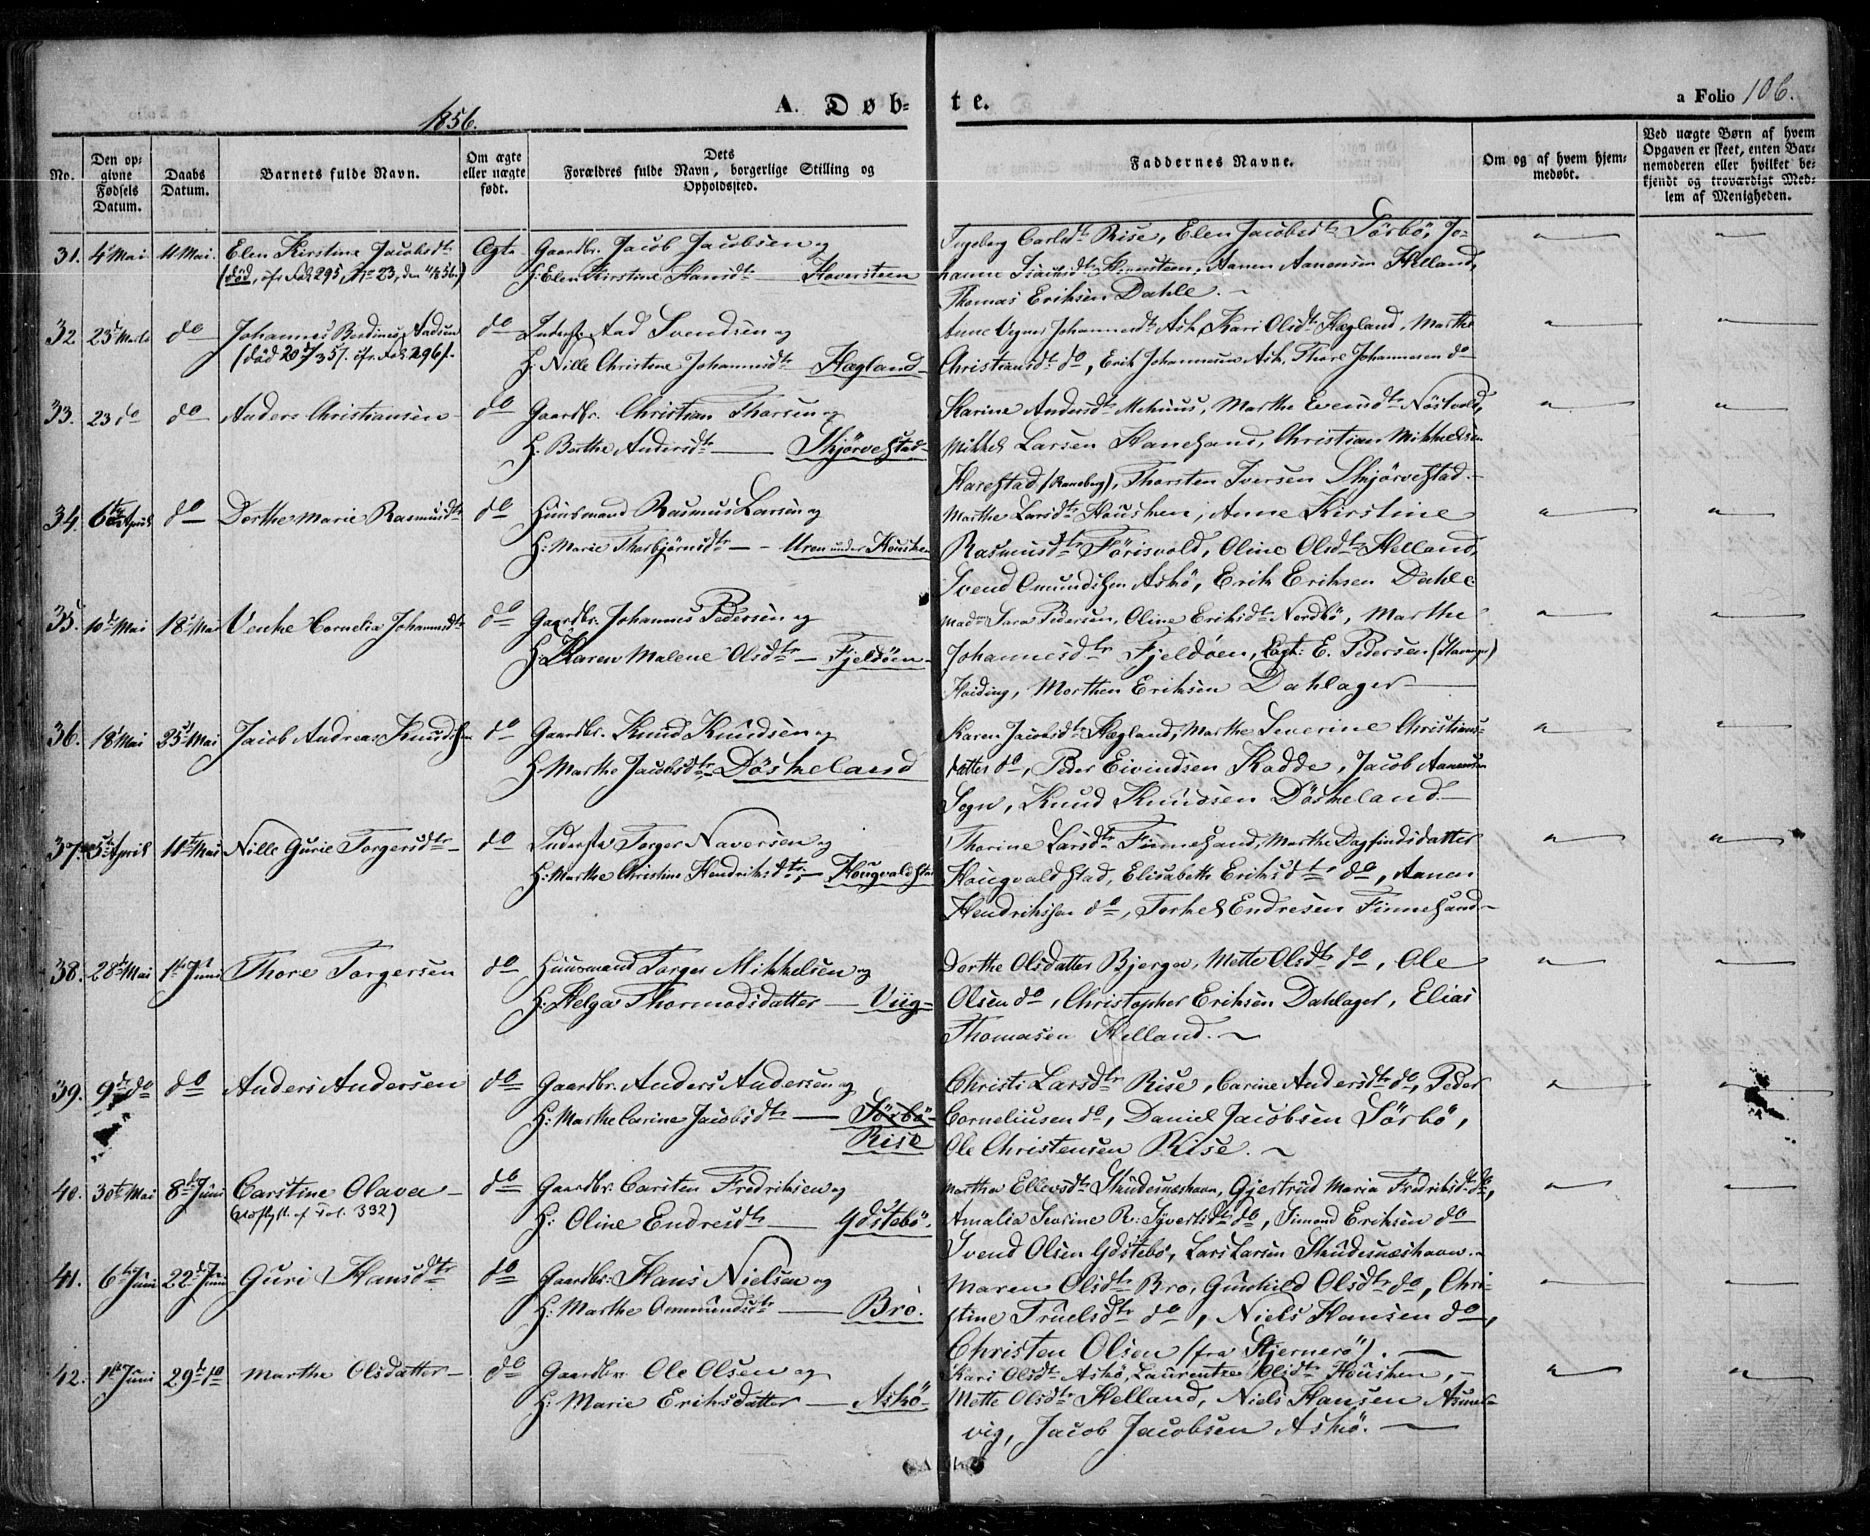 1856.
A. Døb-
te.
a Folio 106.
No.
Den op-
givne
Fødsels
Datum.
Daabs
Datum.
Barnets fulde Navn.
Om ægte
eller uægte
født.
Dets
Forældres fulde Navn, borgerlige Stilling og
Opholdssted.
Faddernes Navne.
Om og af hvem hjem-
medøbt.
Ved uægte Børn af hvem
Opgaven er skeet, enten Bar-
nemoderen eller hvilket be-
kjendt og troværdigt Med-
lem af Menigheden.
31. 4de Mai 11 Mai. Elen Kirstine Jacobsdtr Ægte Gaardbr. Jacob Jacobsen og
(død, cfr. Fol 295, No 23, den 4/8 56.) H: Elen Kirstine Hansdtr — Hoversteen
Ingeborg Carlsdtr Rise, Elen Jacobsdtr Sørbö, Jo-
hanne Isacksdtr Hoversteen, Aanen Aanensen Helland,
Thomas Eriksen Dahle. ~
32. 23de Marts do Johannes Berdines Aadsen do Inderst. Aad Svendsen og
(død 20 5/3 57. cfr. Fol. 296). H: Nille Christine Johannesdtr Hægland
Anne Johannesdtr Ask, Kari Olsdtr Hægland, Marthe
Christiansdtr do, Erik Johannesen Ask, Thore Johannesen do
33. 23 do do Anders Christiansen do Gaardbr. Christian Thorsen og
H. Berthe Andersdtr — Skjørvestad
Karine Andersdtr Mehuus, Marthe Evensdtr Nöstvold,
Mikkel Larsen Hanesand, Christian Mikkelsen
Harestad (Raneberg), Thorsten Iversen Skjörvestad. —
34. 6te April do Dorthe Marie Rasmusdtr do Huusmand Rasmus Larsen og
H: Marie Thorbjörnsdtr — Uren under Housken
Marthe Larsdtr Housken, Anne Kirstine
Rasmusdtr Förisvold, Oline Olsdtr Helland,
Svend Omundsen Askö, Erik Eriksen Dahle
35. 10de Mai 18de Mai Venke Cornelia Johannesdtr do Gaardbr. Johannes Pedersen og
H: Karen Malene Olsdtr — Fjeldöen
Madm Sara Pedersen, Oline Eriksdtr Nordbö, Marthe
Johannesdtr Fjeldöen, E. Pedersen (Stavanger)
Haiding, Morthen Eriksen Dahlager —
36. 18de Mai 25de Mai Jacob Andreas Knudsen do Gaardbr. Knud Knudsen og
H: Marthe Jacobsdtr Döskeland
Karen Jacobsdtr Hægland, Marthe Severine Christians-
datter do, Peder Eivindsen Rodde, Jacob Aanensen
Sogn, Knud Knudsen Döskeland. —
37. 5te April 11te Mai Nille Gurie Torgersdtr do Inderste Torger Naversen og
H: Marthe Christine Hendriksdtr, — Hougvaldstad
Thorine Larsdtr Finnesand, Marthe Dagfindsdatter
Hougvaldstad, Elisabeth Eriksdtr do, Aanen
Hendriksen do, Torkel Endresen Finnesand ~
38. 28de Mai 1ste Juni Thore Torgersen do Huusmand Torger Mikkelsen og
H: Helga Thormodsdatter — Viig
Dorthe Olsdatter Bjerga, Mette Olsdtr do, Ole
Olsen do, Christopher Eriksen Dahlager, Elias
Thomasen Helland. ~
39. 9de do do Anders Andersen do Gaardbr. Anders Andersen og
H: Marthe Carine Jacobsdtr — Sörbö
Rise
Christi Larsdtr Rise, Carine Andersdtr do, Peder
Corneliusen do, Daniel Jacobsen Sörbö,
Ole Christensen Rise. ~
40. 30te Mai 8de Juni Carstine Olava — do Gaardbr. Carsten Fredriksen og
(Udflytt. cf. Fol. 332) H: Oline Endresdtr — Ydstebö.
Marthea Ellevsdtr Skudesnæshavn, Gjertrud Maria Fredriksdtr do,
Amalia Sevrine R. Syvertsdtr do, Simond Eriksen do
Svend Olsen Ydstebö, Lars Larsen Skudesnæshavn. ~
41. 6te Juni 22de Juni Guri Hansdtr do Gaardbr. Hans Nielsen og
H: Marthe Omundsdtr — Bro.
Maren Olsdtr Bro, Gunhild Olsdtr do, Chri-
stine Truelsdtr do, Niels Hansen do,
Christen Olsen (fra Stjernerö). —
42. 1ste Juni 29de do Marthe Olsdatter — do Gaardbr. Ole Olsen og
H: Marie Eriksdatter — Askö
Kari Olsdtr Askö, Laurentze Olsdtr Housken, —
Mette Olsdtr Helland, Niels Hansen Asmar-
vig, Jacob Jacobsen Askö. —